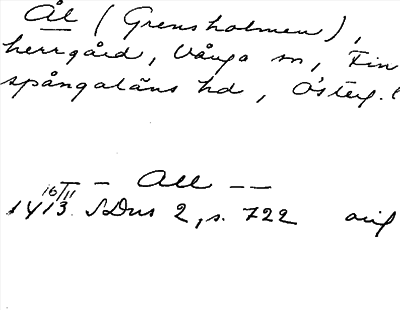 Ål (Grensholmen),
herrgård, Vånga sn, Fin
spångaläns hd, Österg. l
— All — —
16/11
1413. SDns 2, s. 722 orig